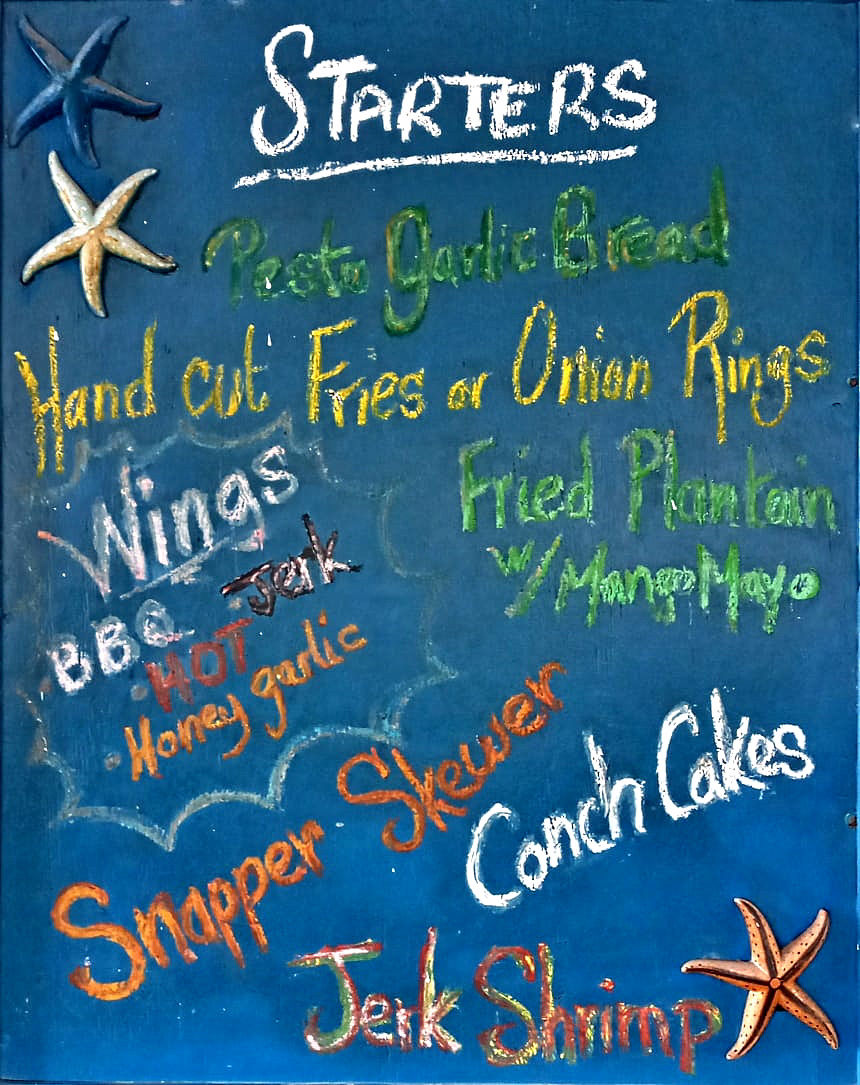 STARTERS
Pesto Garlic Bread
Hand cut Fries or Onion Rings
Wings
BBQ · Jerk
· HOT
· Honey garlic
Fried Plantain
w/ Mango Mayo
Snapper Skewer
Conch Cakes
Jerk Shrimp